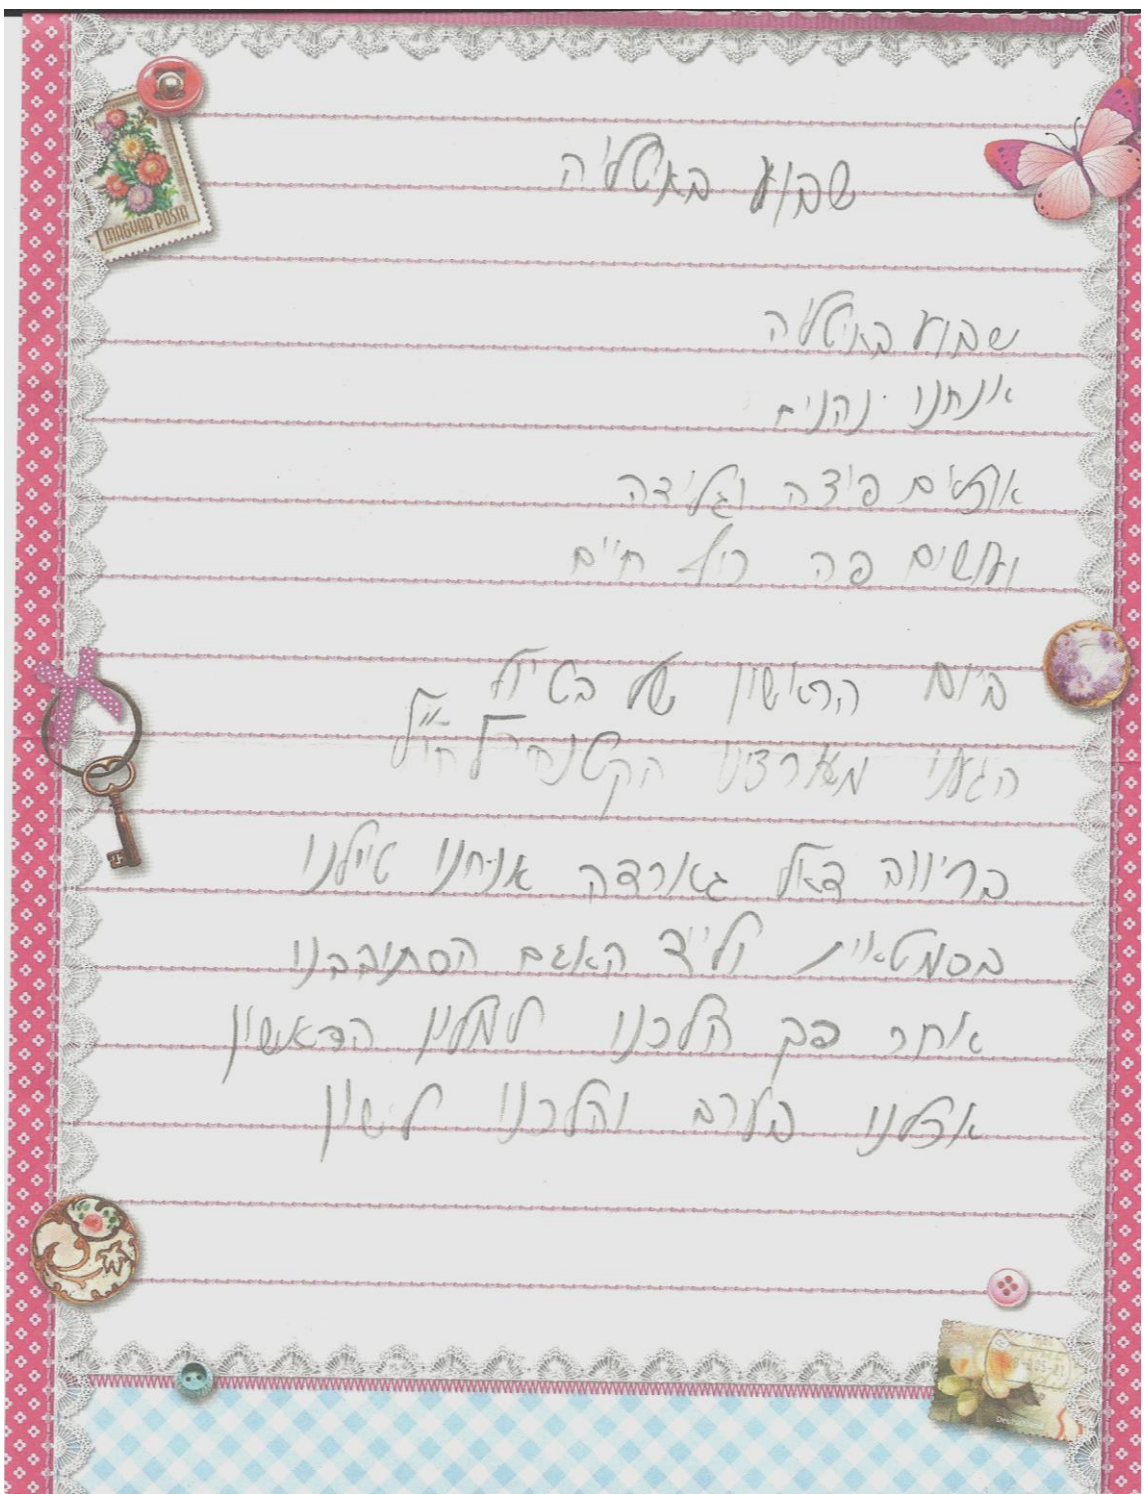 שבוע באיטליה
MAGYAR POSTA
שבוע באיטליה
אנחנו נהנים
אוכלים פיצה וגלידה
ועושים פה חיים
ביום הראשון של בטיול
הגענו מארצנו לחו״ל
בריווה דאל גארדה אנחנו טיילנו
בסמטאות וליד האגם הסתובבנו
אחר כך הלכנו למלון הראשון
אכלנו בערב והלכנו לישון